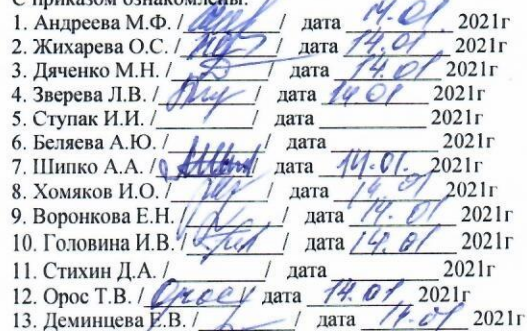 С приказом ознакомлены:
1. Андреева М.Ф. / / дата 14.01 2021г
2. Жихарева О.С. / / дата 14.01 2021г
3. Дяченко М.Н. / / дата 14.01 2021г
4. Зверева Л.В. / / дата 14 01 2021г
5. Ступак И.И. / / дата 2021г
6. Беляева А.Ю. / / дата 2021г
7. Шипко А.А. / / дата 14.01. 2021г
8. Хомяков И.О. / / дата 14.01 2021г
9. Воронкова Е.Н. / / дата 14.01 2021г
10. Головина И.В. / / дата 14.01 2021г
11. Стихин Д.А. / / дата 2021г
12. Орос Т.В. / Орос / дата 14.01 2021г
13. Деминцева Е.В. / / дата 14.01 2021г